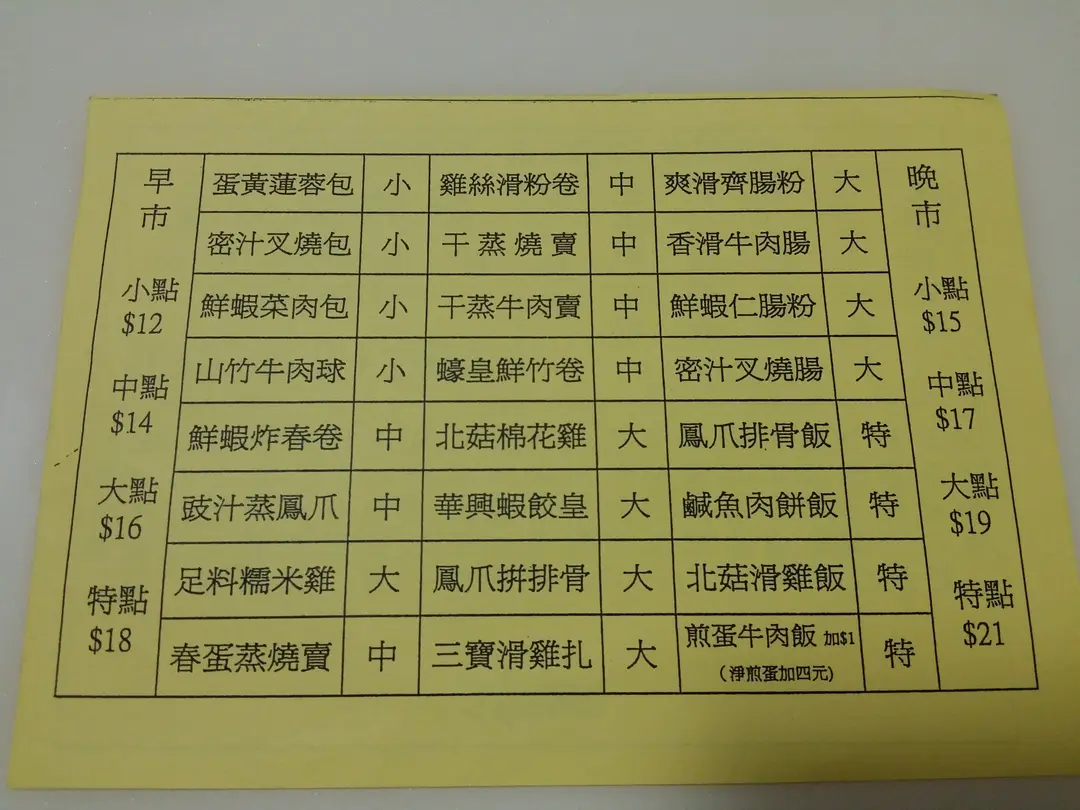 早市
小點
$12
中點
$14
大點
$16
特點
$18
蛋黃蓮蓉包 小 雞絲滑粉卷 中 爽滑齊腸粉 大
密汁叉燒包 小 干蒸燒賣 中 香滑牛肉腸 大
鮮蝦菜肉包 小 干蒸牛肉賣 中 鮮蝦仁腸粉 大
山竹牛肉球 小 蠔皇鮮竹卷 中 密汁叉燒腸 大
鮮蝦炸春卷 中 北菇棉花雞 大 鳳爪排骨飯 特
豉汁蒸鳳爪 中 華興蝦餃皇 大 鹹魚肉餅飯 特
足料糯米雞 大 鳳爪拼排骨 大 北菇滑雞飯 特
春蛋蒸燒賣 中 三寶滑雞扎 大 煎蛋牛肉飯 加$1 特
(淨煎蛋加四元)
晚市
小點
$15
中點
$17
大點
$19
特點
$21